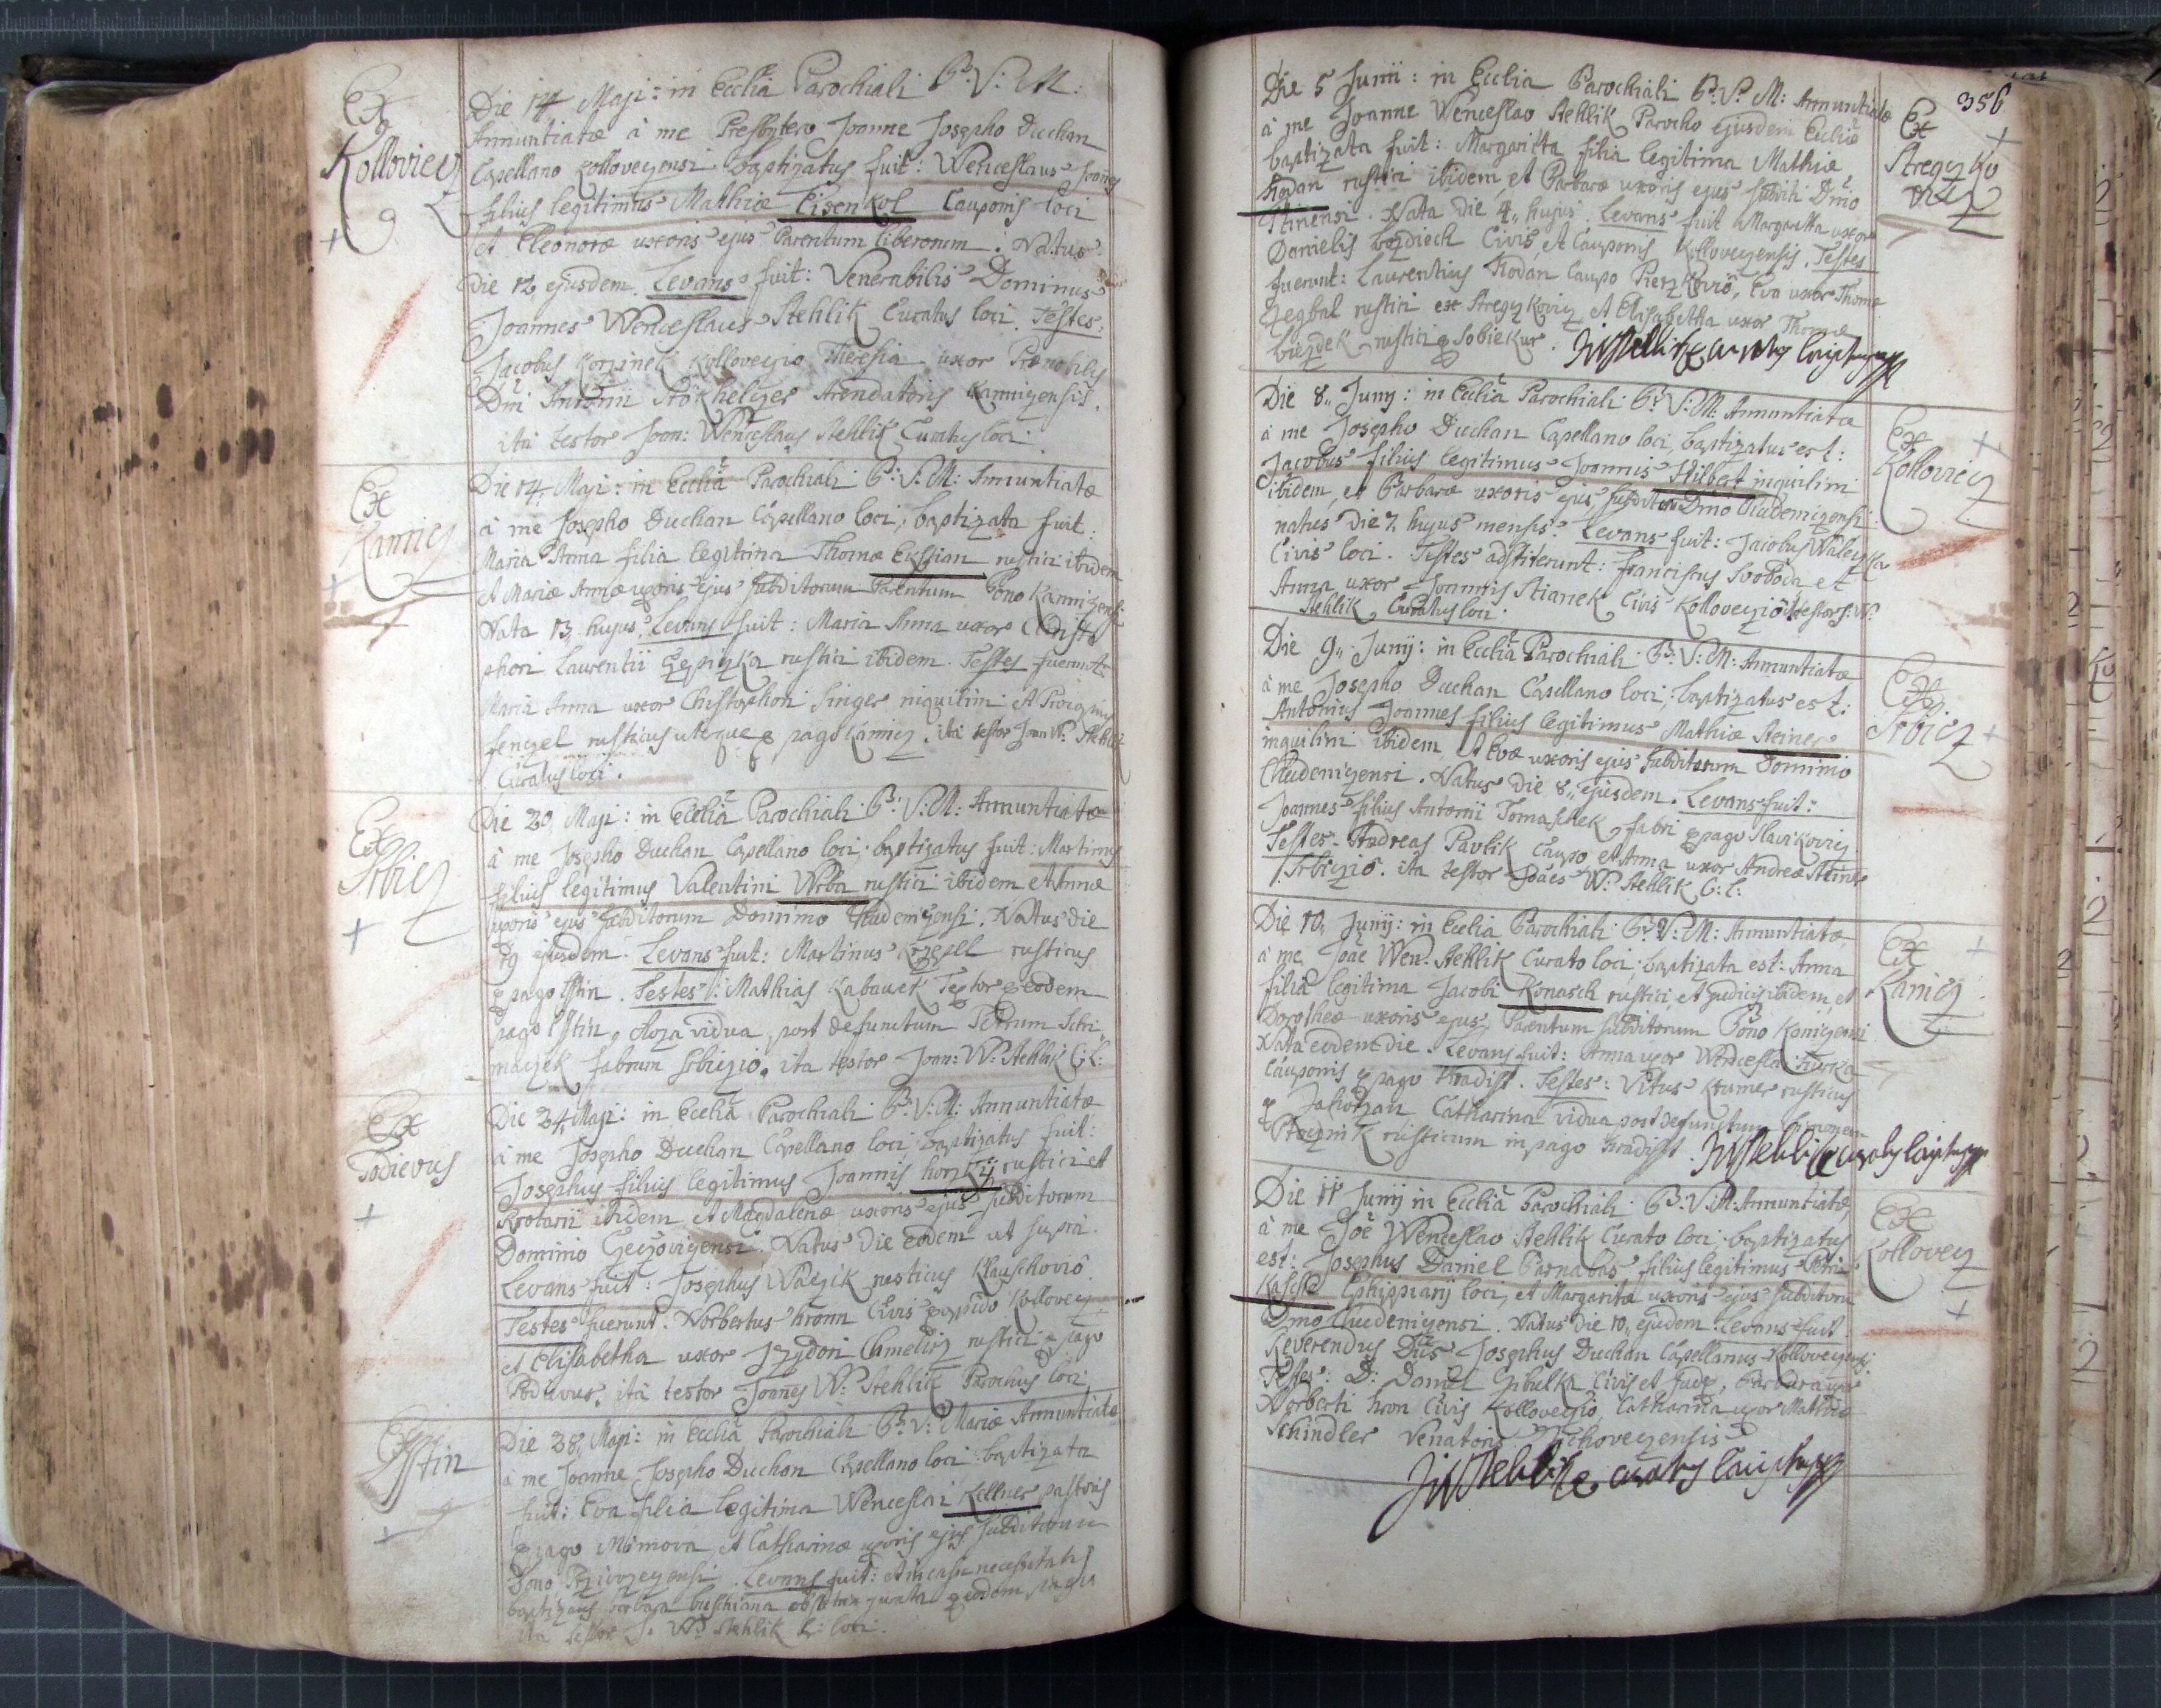 Ex
Kolloviecz
Die 14 Maji: in Ecclia Parochiali B: V: M:
Annuntiatæ à me Presbytero Joanne Josepho Duchan
Capellano Kolloveczensi baptizatus fuit: Wenceslaus Joannes
filius legitimus Mathiæ Eisenkol Cauponis loci
et Eleonoræ uxoris ejus Parentum liberorum. Natus
die 12 ejusdem. Levans fuit: Venerabilis Dominus
Joannes Wenceslaus Stehlik Curatus loci. Testes:
Jacobus Korzinek Kolloveczio Theresia uxor Prænobilis
Dni Antonii Arendatoris Kannizensis.
ita testor Joan: Wenceslaus Stehlik Curatus loci
Ex
Kannicz
Die 14, Maji: in Ecclia Parochiali B: V: M: Annuntiatæ
à me Josepho Duchan Capellano loci, baptizata fuit:
Maria Anna filia legitima Thomæ Eksstian rustici ibidem
et Mariæ Annæ uxoris ejus Subditorum Parentum Dono Kannizensi
Nata 13, hujus. Levans fuit: Maria Anna uxor Christo
phori Laurentii rustici ibidem. Testes fuerunt
Maria Anna uxor Christophori Singer inquilini et
fenczel rusticus uterque e pago Kannicz. ita testor Joan W: Stehlik
Curatus loci.
Ex
Srbicz
Die 20, Maji: in Ecclia Parochiali B: V: M: Annuntiatæ
à me Josepho Duchan Capellano loci, baptizatus fuit: Martinus
filius legitimus Valentini Wrba rustici ibidem et Annæ
uxoris ejus Subditorum Dominio Chudenizensi. Nattus die
19 ejusdem. Levans fuit: Martinus rusticus
e pago Sstin. Testes: Mathias Kabauek Textor e eodem
pago Sstin, Roza vidua post defunctum Petrum Schi
maczek fabrum Srbiczio. ita testor Joan: W: Stehlik C: L:
Ex
Podievus
Die 24, Maji: in Ecclia Parochiali B: V: M: Annuntiatæ
à me Josepho Duchan Capellano loci baptizatus fuit:
Josephus filius legitimus Joannis horzky rustici et
Rotarii ibidem et Magdalenæ uxoris ejus Subditorum
Dominio Natus die eodem ut supra.
Levans fuit: Josephus rusticus Klauschovio.
Testes fuerunt. Norbertus hronn Civis oppido Kollovecz
et Elisabetha uxor rustici e pago
Podievus. ita testor Joanes W: Stehlik Parochus loci
Ex
Sstin
Die 28, Maji: in Ecclia Parochiali B: V: Mariæ Annuntiatæ
à me Joanne Josepho Duchan Capellano loci baptizata
fuit: Eva filia legitima Wenceslai Kellner pastoris
e pago et Catharinæ uxoris ejus Subditorum
Dono Levans fuit: et in casu necessitatis
baptizans barbara obstetrix jurata e eodem pago
ita testor J. W: Stehlik C: loci.
356
Ex
Stregczko
vicz
Die 5 Junii: in Ecclia Parochiali B: V: M: Annuntiatæ
à me Joanne Wenceslao Stehlik Parocho ejusdem Ecclie
baptizata fuit: Margaritta filia legitima Mathiæ
hodan rustici ibidem et Barbaræ uxoris ejus Subditi Dmo
Stinensi. Nata die 4,, hujus. Levans fuit Margaretta uxor
Danielis bozdiech Civis et Cauponis Kolloveczensis. Testes
fuerunt: Laurentius Hodan Caupo Eva uxor Thomæ
rustici ex Stregczkovicz et Elisabetha uxor Thomæ
rustici e Sobiekur. JWStehlik Curatus loci
Ex
Kolloviecz
Die 8,, Junÿ: in Ecclia Parochiali B: V: M: Annuntiatæ
à me Josepho Duchan Capellano loci, baptizatus est:
Jacobus filius legitimus Joannis Hilbert inquilini
ibidem, et Barbaræ uxoris ejus Subditorum Dmo Chudenizensi
natus die 7 hujus mensis. Levans fuit: Jacobus
Civis loci. Testes adstiterunt: franciscus Svoboda et
Anna uxor Joannis Stianek Civis Kolloveczio ita testor J: W:
Stehlik Curatus loci.
Ex
Srbicz
Die 9,, Junÿ: in Ecclia Parochiali B: V: M: Annuntiatæ
à me Josepho Duchan Capellano loci, baptizatus est:
Antonius Joannes filius legitimus Mathiæ Steiner
inquilini ibidem, et Evæ uxoris ejus Subditorum Dominio
Chudenizensi. Natus die 8,, ejusdem. Levans fuit:
Joannes filius Antonii Tomaschek, fabri e pago Slavikovicz
Testes. Andreas Pavlik Caupo, et Anna uxor Andreæ Steiner
Srbiczio. ita testor Joães W: Stehlik C: L:
Ex
Kanicz
Die 10, Junÿ: in Ecclia Parochiali B: V: M: Annuntiatæ,
à me Joãe Wen: Stehlik Curato loci, baptizata est: Anna
filia legitima Jacobi Konasch rustici, et judicis ibidem, et
Dorotheæ uxoris ejus Parentum subditorum Dono Kanizensi
Nata eodem die. Levans fuit: Anna uxor Wenceslai
Cauponis e pago Hradist. Testes: Vitus Kramer rusticus
e Catharina vidua post defunctum
rusticum in pago Hradist. JWStehlik Curatus loci
Ex
Kollovecz
Die 11 Junÿ in Ecclia Parochiali B: V: M: Annuntiatæ,
à me Joẽ Wenceslao Stehlik Curato loci baptizatus
est: Josephus Daniel Barnabas filius legitimus Petri
Kaschka Ephippiarÿ loci, et Margarita uxoris ejus subditorum
Dmo Chudenizensi. Natus die 10,, ejusdem. Levans fuit
Reverendus Dũs Josephus Duchan Capellanus Kolloveczensis.
Testes: D: Daniel Czibulka Civis et Judex, Barbara uxor
Norberti hron Civis Kolloveczio, Catharina uxor Mathiæ
Schindler Venatoris
JWStehlik Curatus loci